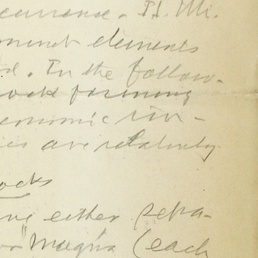 currence. If Mi
ominent elements
d. In the follow-
rock forming
economic im-
ies are relatively
ocks
ing either sepa-
or "Magma (each